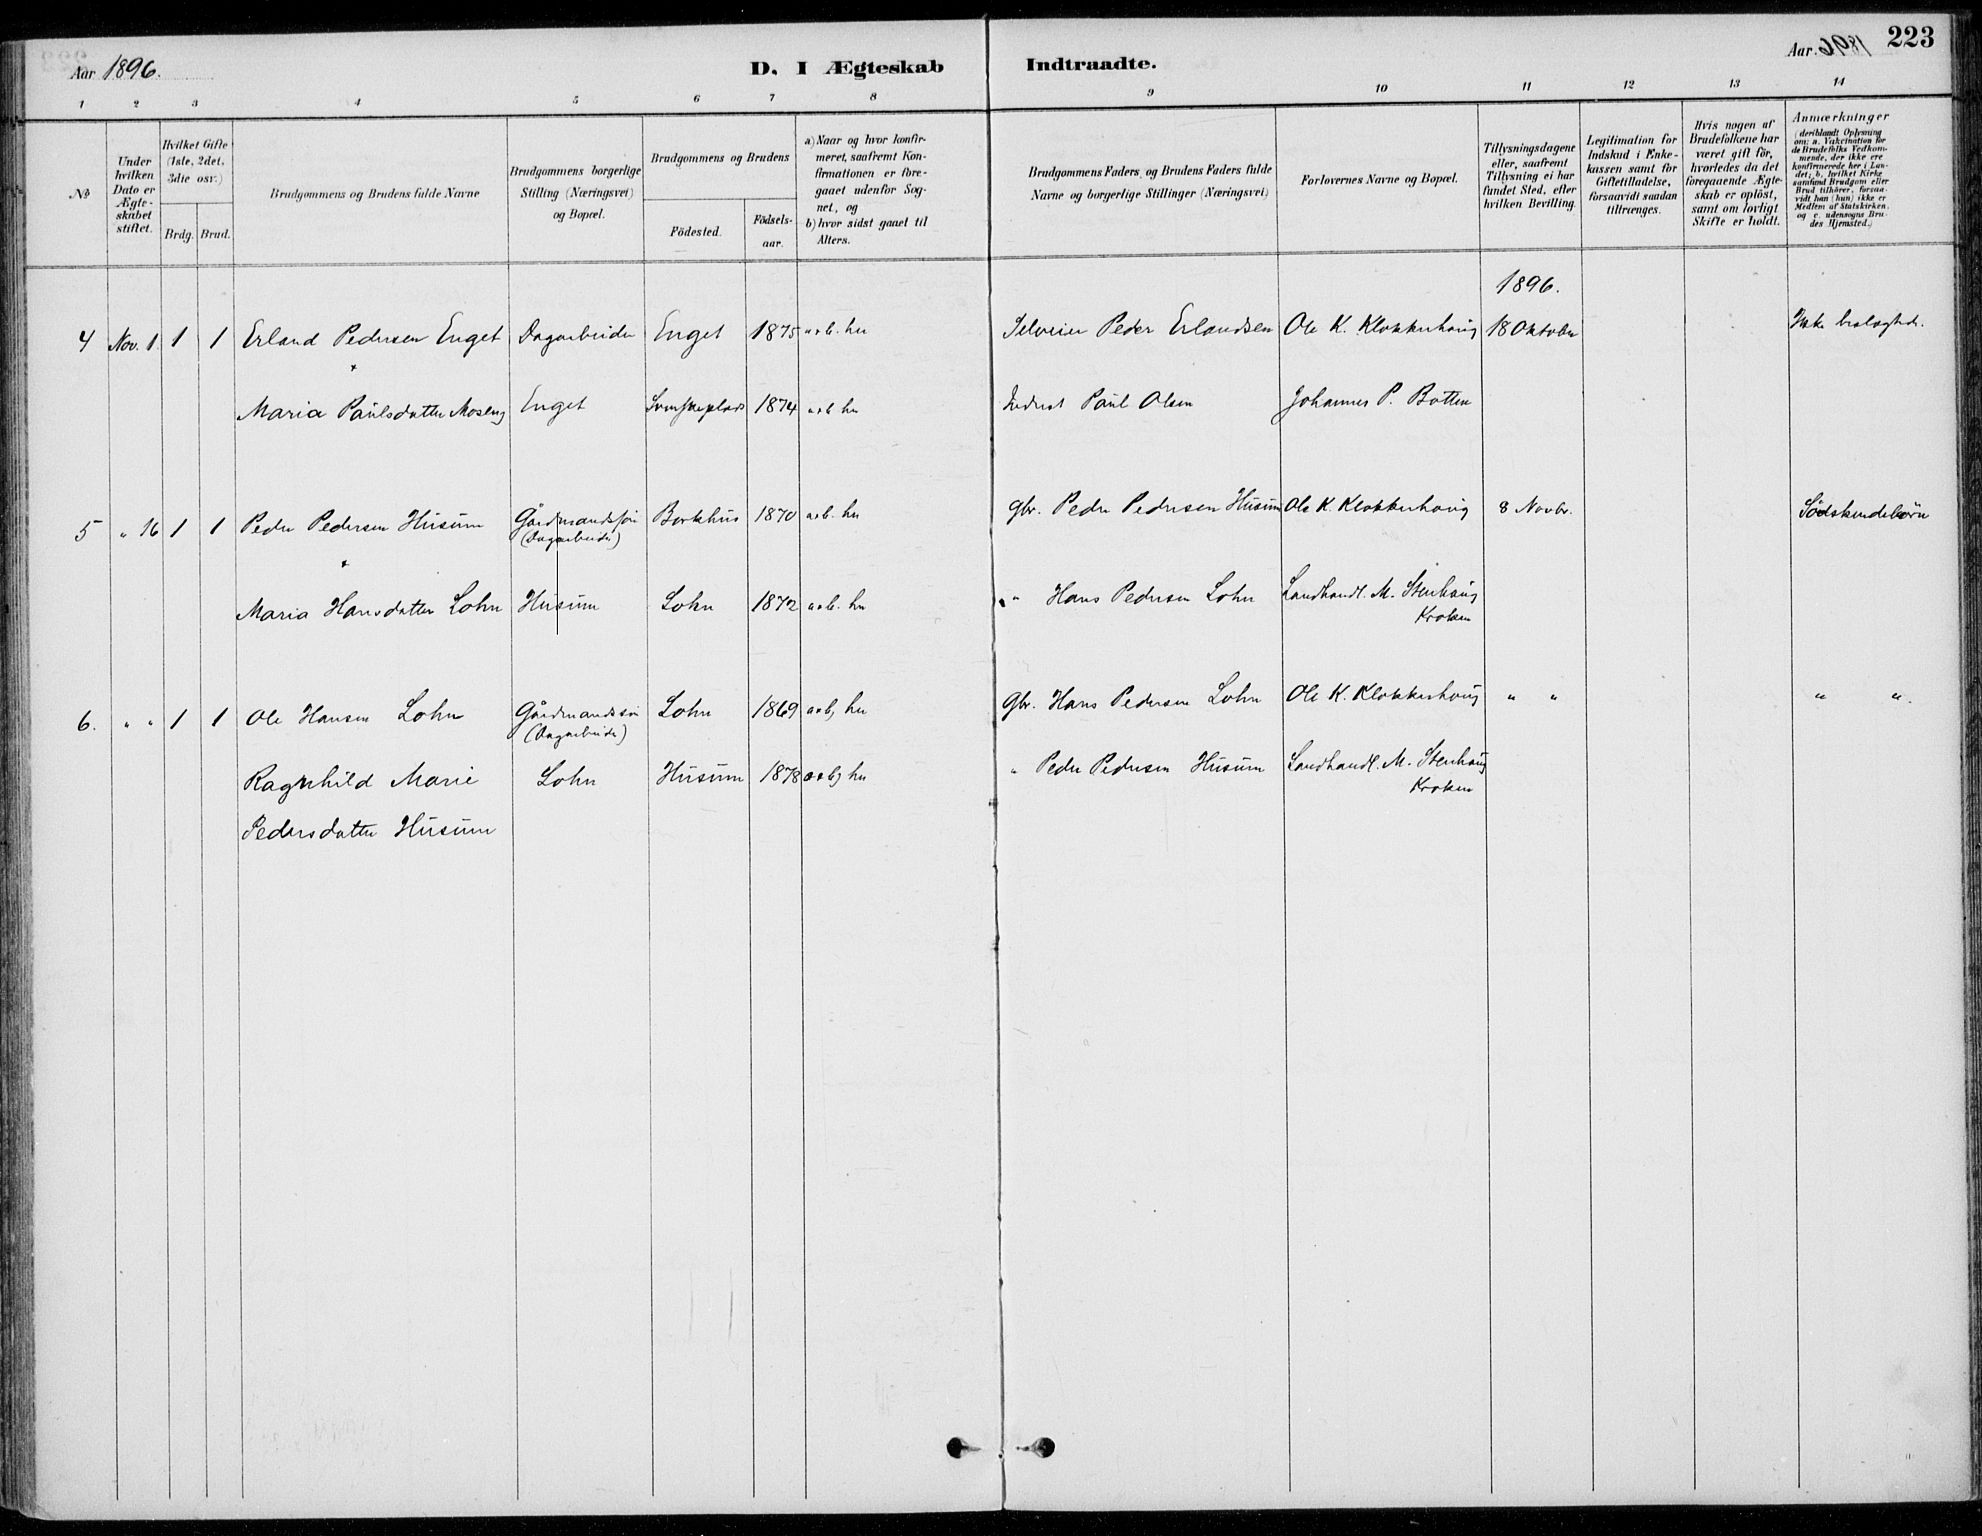 Aar 1896.
D. I Ægteskab Indtraadte.
Aar 1896
223
1 2 3 4 5 6 7 8 9 10 11 12 13 14
No
Under hvilken Dato er Ægteskabet stiftet.
Hvilket Gifte (1ste, 2det, 3die osv.)
Brdg. Brud.
Brudgommens og Brudens fulde Navne
Brudgommens borgerlige Stilling (Næringsvei) og Bopæl.
Brudgommens og Brudens
Födested.
Födsels-aar.
a) Naar og hvor konfir-
meret, saafremt Kon-
firmationen er fore-
gaaet udenfor Sog-
net, og
b) hvor sidst gaaet til
Alters.
Brudgommens Faders, og Brudens Faders fulde
Navne og borgerlige Stillinger (Næringsvei)
Forlovernes Navne og Bopæl.
Tillysningsdagene
eller, saafremt
Tillysning ei har
fundet Sted, efter
hvilken Bevilling.
Legitimation for
Indskud i Enke-
kassen samt for
Giftetilladelse,
forsaavidt saadan
tiltrænges.
Hvis nogen af
Brudefolkene har
været gift för,
hvorledes da det
foregaaende Ægte-
skab er oplöst,
samt om lovligt
Skifte er holdt.
Anmærkninger
(deriblandt Oplysning
om: a. Vakcination for
de Brudefolks Vedkom-
mende, der ikke ere
konfirmerede her i Lan-
det; b. hvilket Kirke-
samfund Brudgom eller
Brud tilhörer, forsaa-
vidt han (hun) ikke er
Medlem af Statskirken,
og c. udensogns Bru-
des Hjemsted.)
1896.
4 Nov. 1 1 1 Erland Pedersen Enget Dagarbeider Enget 1875 a+b. her Selveier Peder Erlandsen Ole K. Klokkerhaug 18 Oktober Ikke beslægtede.
+
Maria Paulsdatter Moseng Enget 1874 a+b her Inderst Paul Olsen Johannes P. Botten
5 " 16 1 1 Peder Pedersen Husum Gårdmandssøn Borkhus 1870 a+b. her Gbr. Peder Pedersen Husum Ole K Klokkerhaug 8 Novbr. Södskendebørn
(Dagarbeider)
+
Maria Hansdatter Lohn Husum Lohn 1872 a+b. her " Hans Pedersen Lohn Landhandl. M. Stenhaug
Kroken
6. " " 1 1 Ole Hansen Lohn Gårdmandssøn Lohn 1869 a+b, her Gbr. Hans Pedersen Lohn Ole K. Klokkerhaug " " " ".
(Dagarbeider)
Ragnhild Marie Lohn Husum 1878 a+b, her " Peder Pedersen Husum Landhandl. M. Stenhaug
Kroken
Pedersdatter Husum